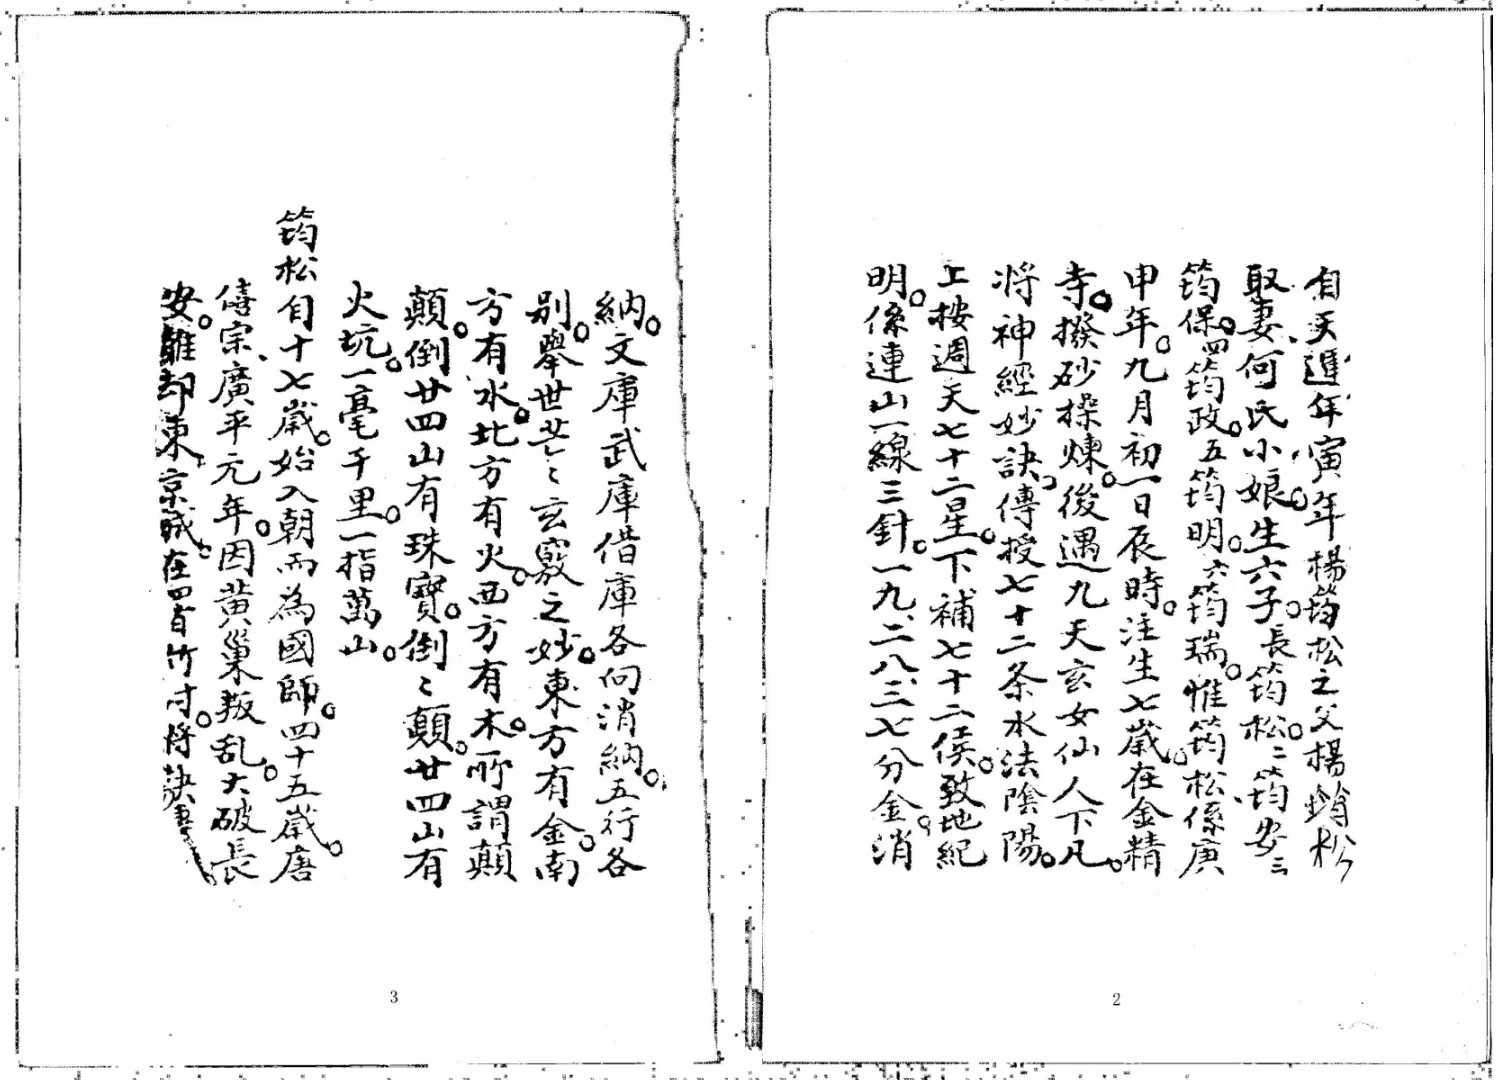 自天進年寅年楊筠松之父楊筠松
取妻何氏小娘生六子。長筠松。二筠安三
筠保。四筠政。五筠明。六筠瑞。惟筠松係庚
申年。九月初一日辰時。注生七歲。在金精
寺。撥砂操煉。後遇九天玄女仙人下凡。
將神經妙訣。傳授七十二条水法陰陽。
上按週天七十二星。下補七十二侯。致地紀
明。係連山一線三針。一九、二八、三七分金。消
2
納。文庫武庫借庫各向消納。五行各
別。舉世芒〻玄竅之妙。東方有金。南
方有水。北方有火。西方有木。所謂顛
顛。倒廿四山有珠寶。倒〻顛。廿四山有
火坑。一毫千里。一指萬山。
筠松自十七歲。始入朝而為國師。四十五歲。唐
僖宗、廣平元年。因黄巢叛乱。大破長
安。離却東京城。在四省竹寸。將訣
3